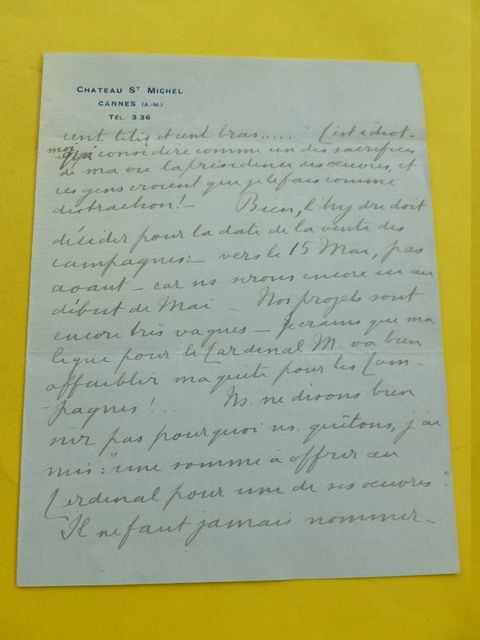 CHATEAU ST MICHEL
CANNES (A.-M.)
TÉL. 3.36
cent têtes et cent bras..... " C'est idiot -
moi qui considère comme un des sacrifices
de ma vie la présidence des oeuvres, et
ces gens croient que je le fais comme
distraction! - Bien, l'hydre doit
décider pour la date de la vente des
campagnes: - vers le 15 Mai, pas
avant - car ns. serons encore ici au
début de Mai - Nos projets sont
encore très vagues - Je crains que ma
ligue pour le Cardinal M. va bien
affaiblir ma quête pour les Cam-
-pagnes!... Ns. ne disons bien
sûr pas pourquoi ns. quêtons, j'ai
mis: "une somme à offrir au
Cardinal pour une de ses oeuvres".
Il ne faut jamais nommer -